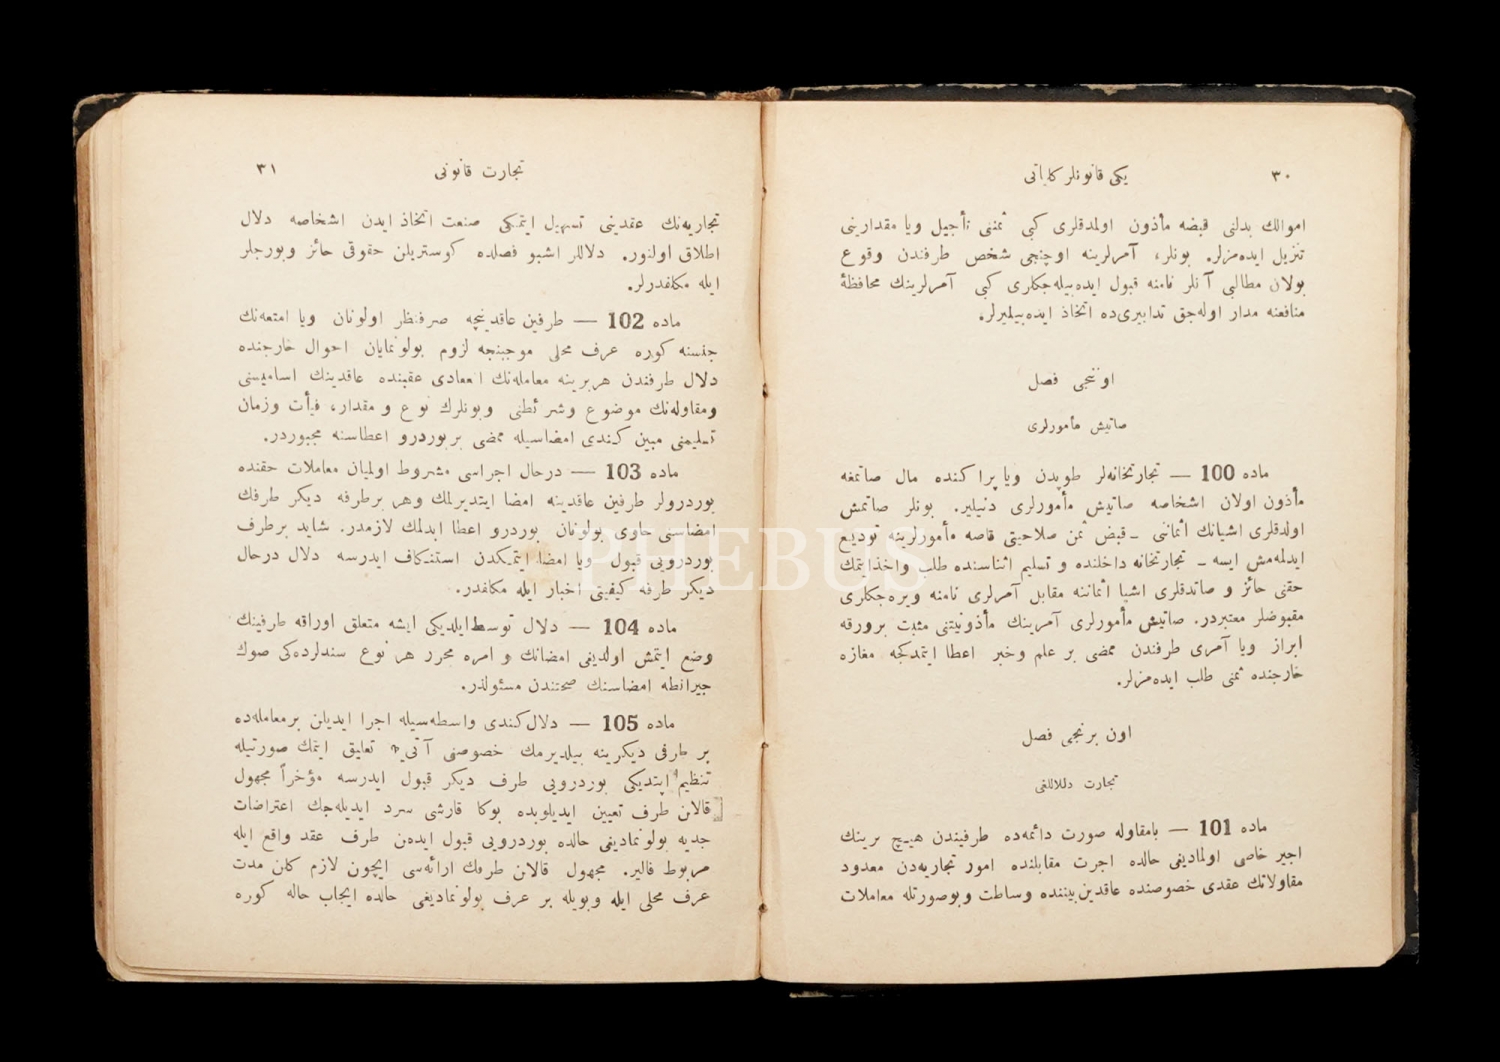 ٣٠
يكى قانونلر كلياتى
اموالك بدلنى قبضه مأذون اولمدقلرى كبى ثمنى تأجيل ويا مقدارينى
تنزيل ايده‌مزلر. بونلر، آمرلرينه اوچنجى شخص طرفندن وقوع
بولان مطالبى آنلر نامنه قبول ايده‌بيله‌جكلرى كبى آمرلرينك محافظۀ
منافعنه مدار اوله‌جق تدابيرى‌ده اتخاذ ايده‌بيليرلر.
اوننجى فصل
صاتيش مأمورلرى
ماده 100 — تجارتخانه‌لر طوپدن ويا پراكنده مال صاتمغه
مأذون اولان اشخاصه صاتيش مأمورلرى دنيلير. بونلر صاتمش
اولدقلرى اشيانك أثماننى ـ قبض ثمن صلاحيتى قاصه مأمورلرينه توديع
ايدلمه‌مش ايسه ـ تجارتخانه داخلنده و تسليم اثناسنده طلب واخذايتمك
حقنى حائز و صاتدقلرى اشيا أثماننه مقابل آمرلرى نامنه ويره‌جكلرى
مقبوضلر معتبردر. صاتيش مأمورلرى آمرينك مأذونيتنى مثبت برورقه
ابراز ويا آمرى طرفندن ممضى بر علم وخبر اعطا ايتمدكجه مغازه
خارجنده ثمنى طلب ايده‌مزلر.
اون برنجى فصل
تجارت دللاللغى
ماده 101 — بامقاوله صورت دائمه‌ده طرفيندن هيچ برينك
اجير خاصى اولماديغى حالده اجرت مقابلنده امور تجاريه‌دن معدود
مقاولاتك عقدى خصوصنده عاقدين‌بيننده وساطت وبوصورتله معاملات
تجارت قانونى
٣١
تجاريه‌نك عقدينى تسهيل ايتمكى صنعت اتخاذ ايدن اشخاصه دلال
اطلاق اولنور. دلاللر اشبو فصلده كوستريلن حقوقى حائز وبورجلر
ايله مكلفدرلر.
ماده 102 — طرفين عاقدينجه صرفنظر اولونان ويا امتعه‌نك
جنسنه كوره عرف محلى موجبنجه لزوم بولونمايان احوال خارجنده
دلال طرفندن هربرينه معامله‌نك انعقادى عقبنده عاقدينك اساميسنى
ومقاوله‌نك موضوع وشرائطنى وبونلرك نوع و مقدار، فيأت وزمان
تسليمنى مبين كندى امضاسيله ممضى بربوردرو اعطاسنه مجبوردر.
ماده 103 — درحال اجراسى مشروط اولميان معاملات حقنده
بوردرولر طرفين عاقدينه امضا ايتديرلمك وهر برطرفه ديكر طرفك
امضاسنى حاوى بولونان بوردرو اعطا ايدلمك لازمدر. شايد برطرف
بوردرويى قبول ويا امضا ايتمكدن استنكاف ايدرسه دلال درحال
ديكر طرفه كيفيتى اخبار ايله مكلفدر.
ماده 104 — دلال توسط‌ايلديكى ايشه متعلق اوراقه طرفينك
وضع ايتمش اولديغى امضانك و امره محرر هر نوع سندلرده‌كى صوك
جيرانطه امضاسنك صحتندن مسئولدر.
ماده 105 — دلال‌كندى واسطه‌سيله اجرا ايديلن برمعامله‌ده
بر طرفى ديكرينه بيلديرمك خصوصنى آتى‌يه تعليق ايتمك صورتيله
تنظيم ايتديكى بوردرويى طرف ديكر قبول ايدرسه مؤخراً مجهول
قالان طرف تعيين ايديلوبده بوكا قارشى سرد ايديله‌جك اعتراضات
جديه بولونماديغى حالده بوردرويى قبول ايده‌ن طرف عقد واقع ايله
مربوط قالير. مجهول قالان طرفك ارائه‌سى ايچون لازم كلن مدت
عرف محلى ايله وبويله بر عرف بولونماديغى حالده ايجاب حاله كوره
PHEBUS